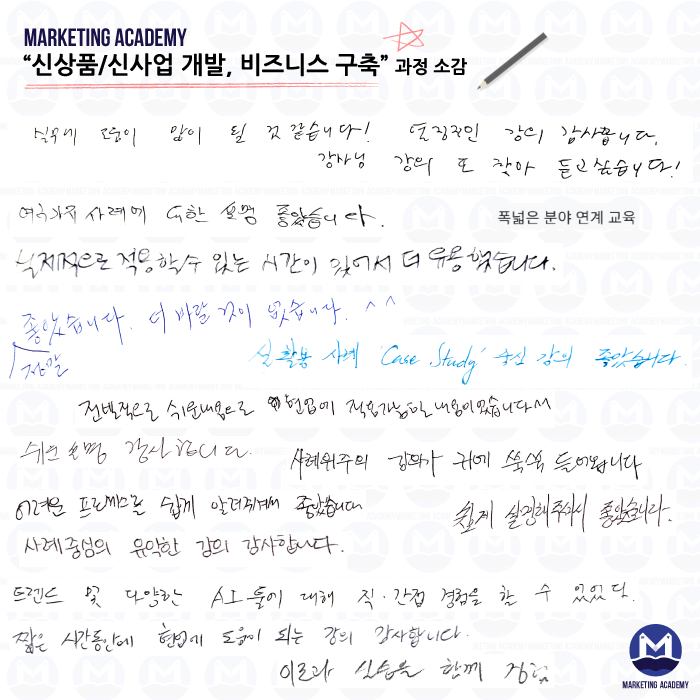 MARKETING ACADEMY
“신상품/신사업 개발, 비즈니스 구축” 과정 소감
실무에 도움이 많이 될 것 같습니다! 열정적인 강의 감사합니다.
강사님 강의 또 찾아 듣고싶습니다!
여러가지 사례에 대한 설명 좋았습니다.
폭넓은 분야 연계 교육
실제적으로 적용할 수 있는 시간이 있어서 더 유용했습니다.
좋았습니다. 더 바랄 것이 없습니다. ^^
정말
실 활용 사례 'Case Study' 중심 강의 좋았습니다.
전반적으로 쉬운내용으로 현업에 적용가능한 내용이었습니다
쉬운 설명 감사합니다.
사례위주의 강의가 귀에 쏙쏙 들어옵니다
어려운 프로세스를 쉽게 알려주셔서 좋았습니다
쉽게 설명해주셔서 좋았습니다.
사례중심의 유익한 강의 감사합니다.
트렌드 및 다양한 AI 툴에 대해 직·간접 경험을 할 수 있었다.
짧은 시간동안에 현업에 도움이 되는 강의 감사합니다.
이론과 실습을 함께 경험
MARKETING ACADEMY